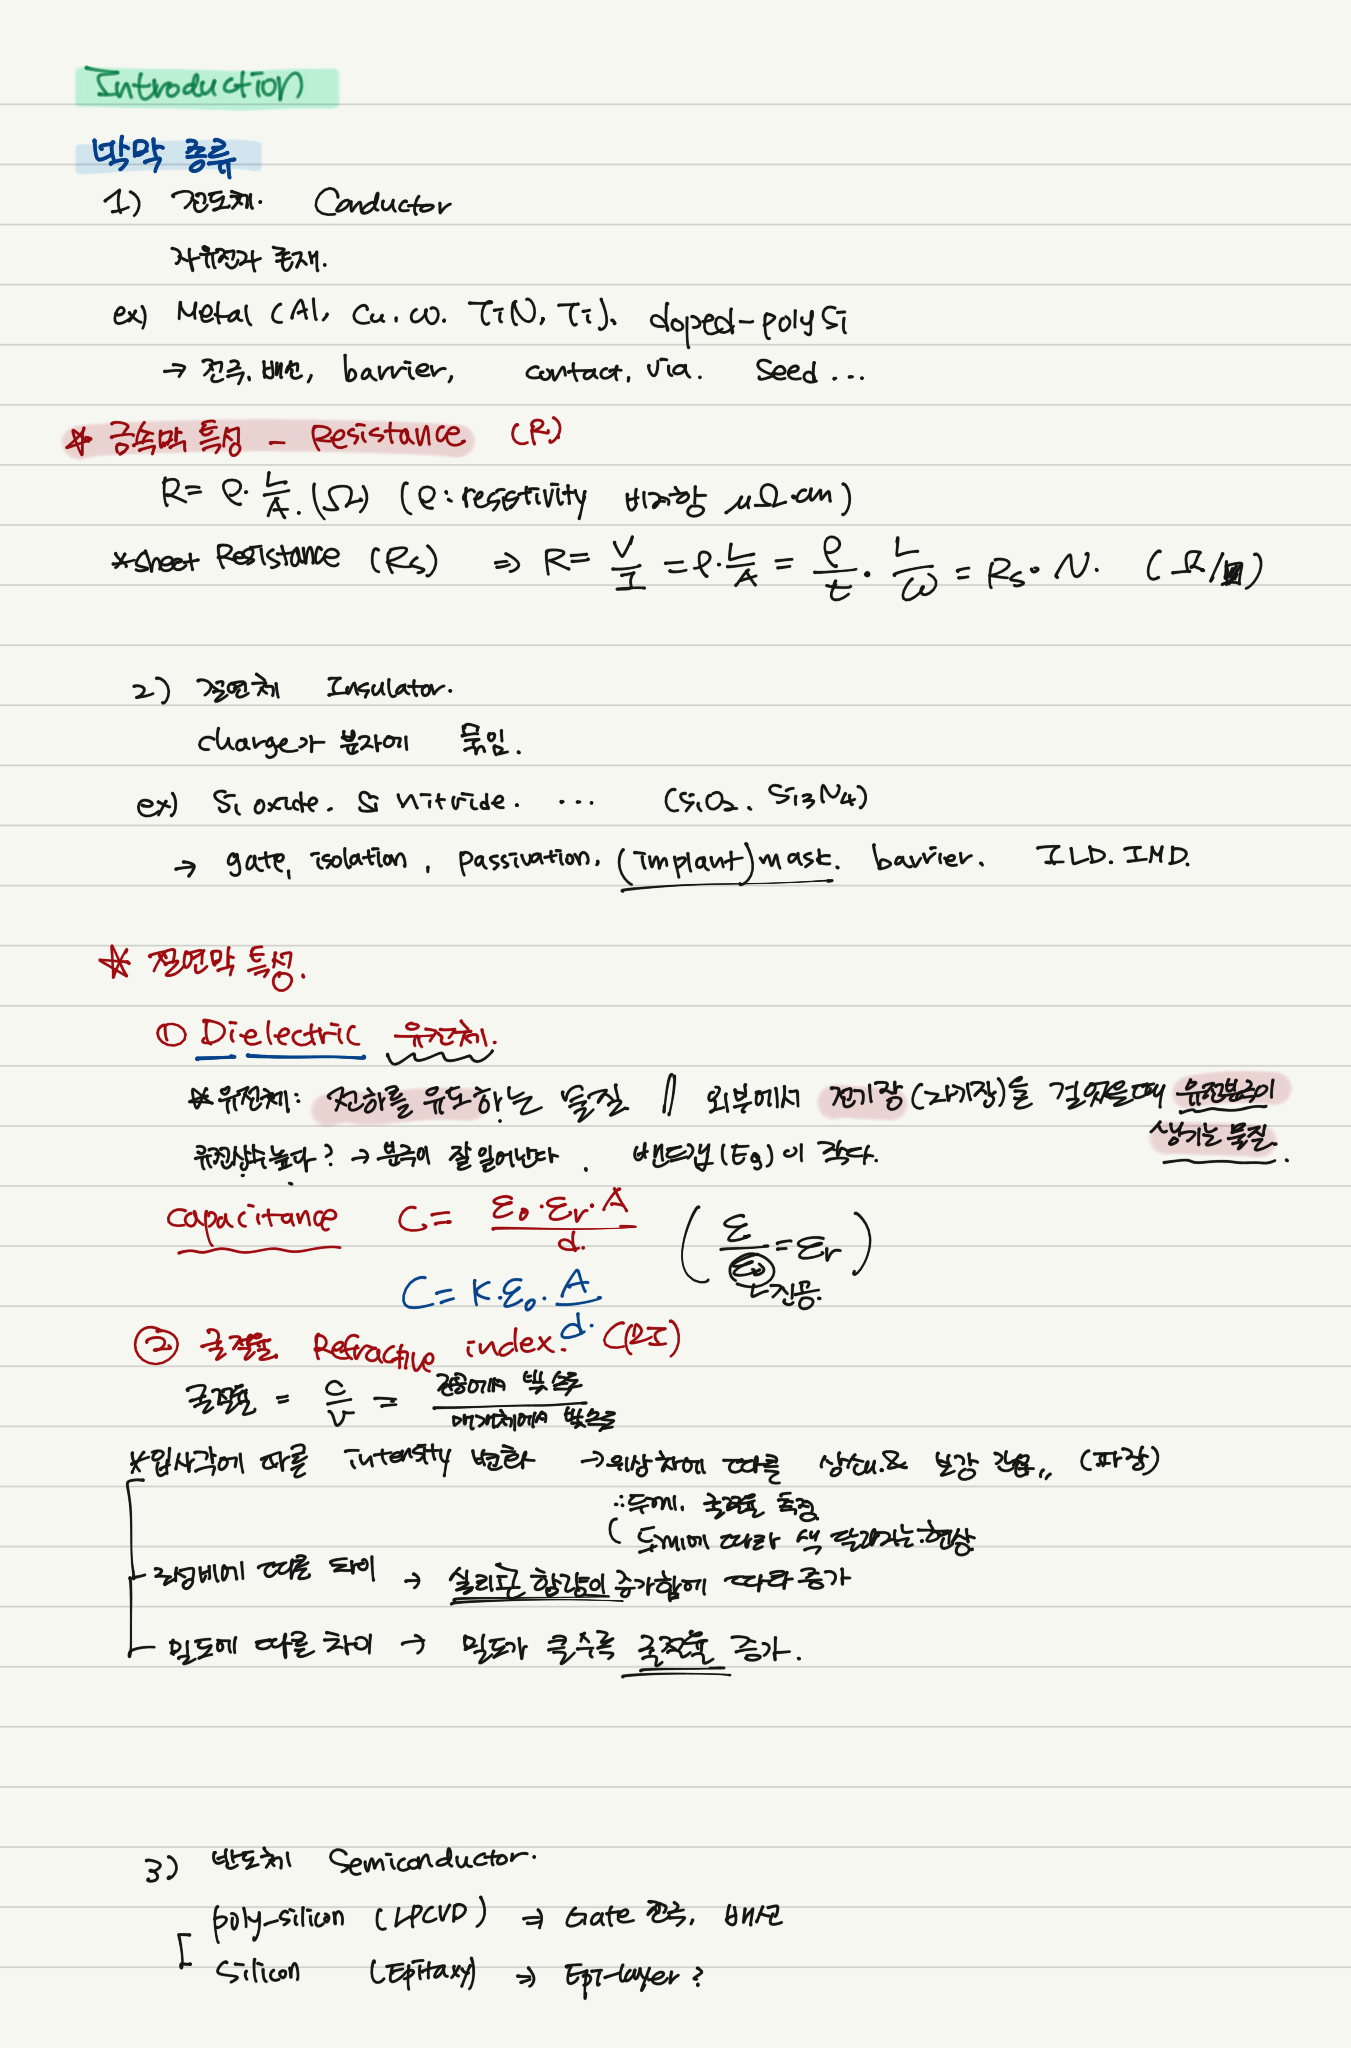 Introduction
박막 종류
1) 전도체. Conductor
자유전자 존재.
ex) Metal (Al, Cu. W. TiN, Ti). doped-poly Si
→ 전극, 배선, barrier, contact, via. Seed ...
☆ 금속막 특성 - Resistance (R)
R= ρ· L/A. (Ω) (ρ: resistivity 비저항 μΩ·cm)
*Sheet Resistance (Rs) ⇒ R= V/I = ρ·L/A = ρ/t · L/W = Rs· N. (Ω/
2) 절연체 Insulator.
charge가 분자에 묶임.
ex) Si oxide. Si nitride. ... (SiO2. Si3N4)
→ gate, isolation, passivation, (implant) mask. barrier. ILD. IMD.
☆ 절연막 특성.
① Dielectric 유전체.
*유전체: 전하를 유도하는 물질 // 외부에서 전기장(자기장)을 걸었을때 유전분극이
생기는 물질.
유전상수 높다? → 분극이 잘 일어난다. 밴드갭(Eg)이 작다.
Capacitance C= ε0·εr·A/d. (ε/ε0=εr)
↳진공.
C= K·ε0·A/d.
② 굴절율 Refractive index. (RI)
굴절율 = c/v = 진공에서 빛 속도/매개체에서 빛 속도
*입사각에 따른 intensity 변화 → 위상차에 따른 상쇄.& 보강 간섭,, (파장)
∴두께, 굴절율 측정
( 두께에 따라 색 달라지는 현상
조성비에 따른 차이 → 실리콘 함량이 증가함에 따라 증가
밀도에 따른 차이 → 밀도가 클수록 굴절율 증가.
3) 반도체 Semiconductor.
poly-silicon (LPCVD) ⇒ Gate 전극, 배선
Silicon (Epitaxy) ⇒ Epi-layer?